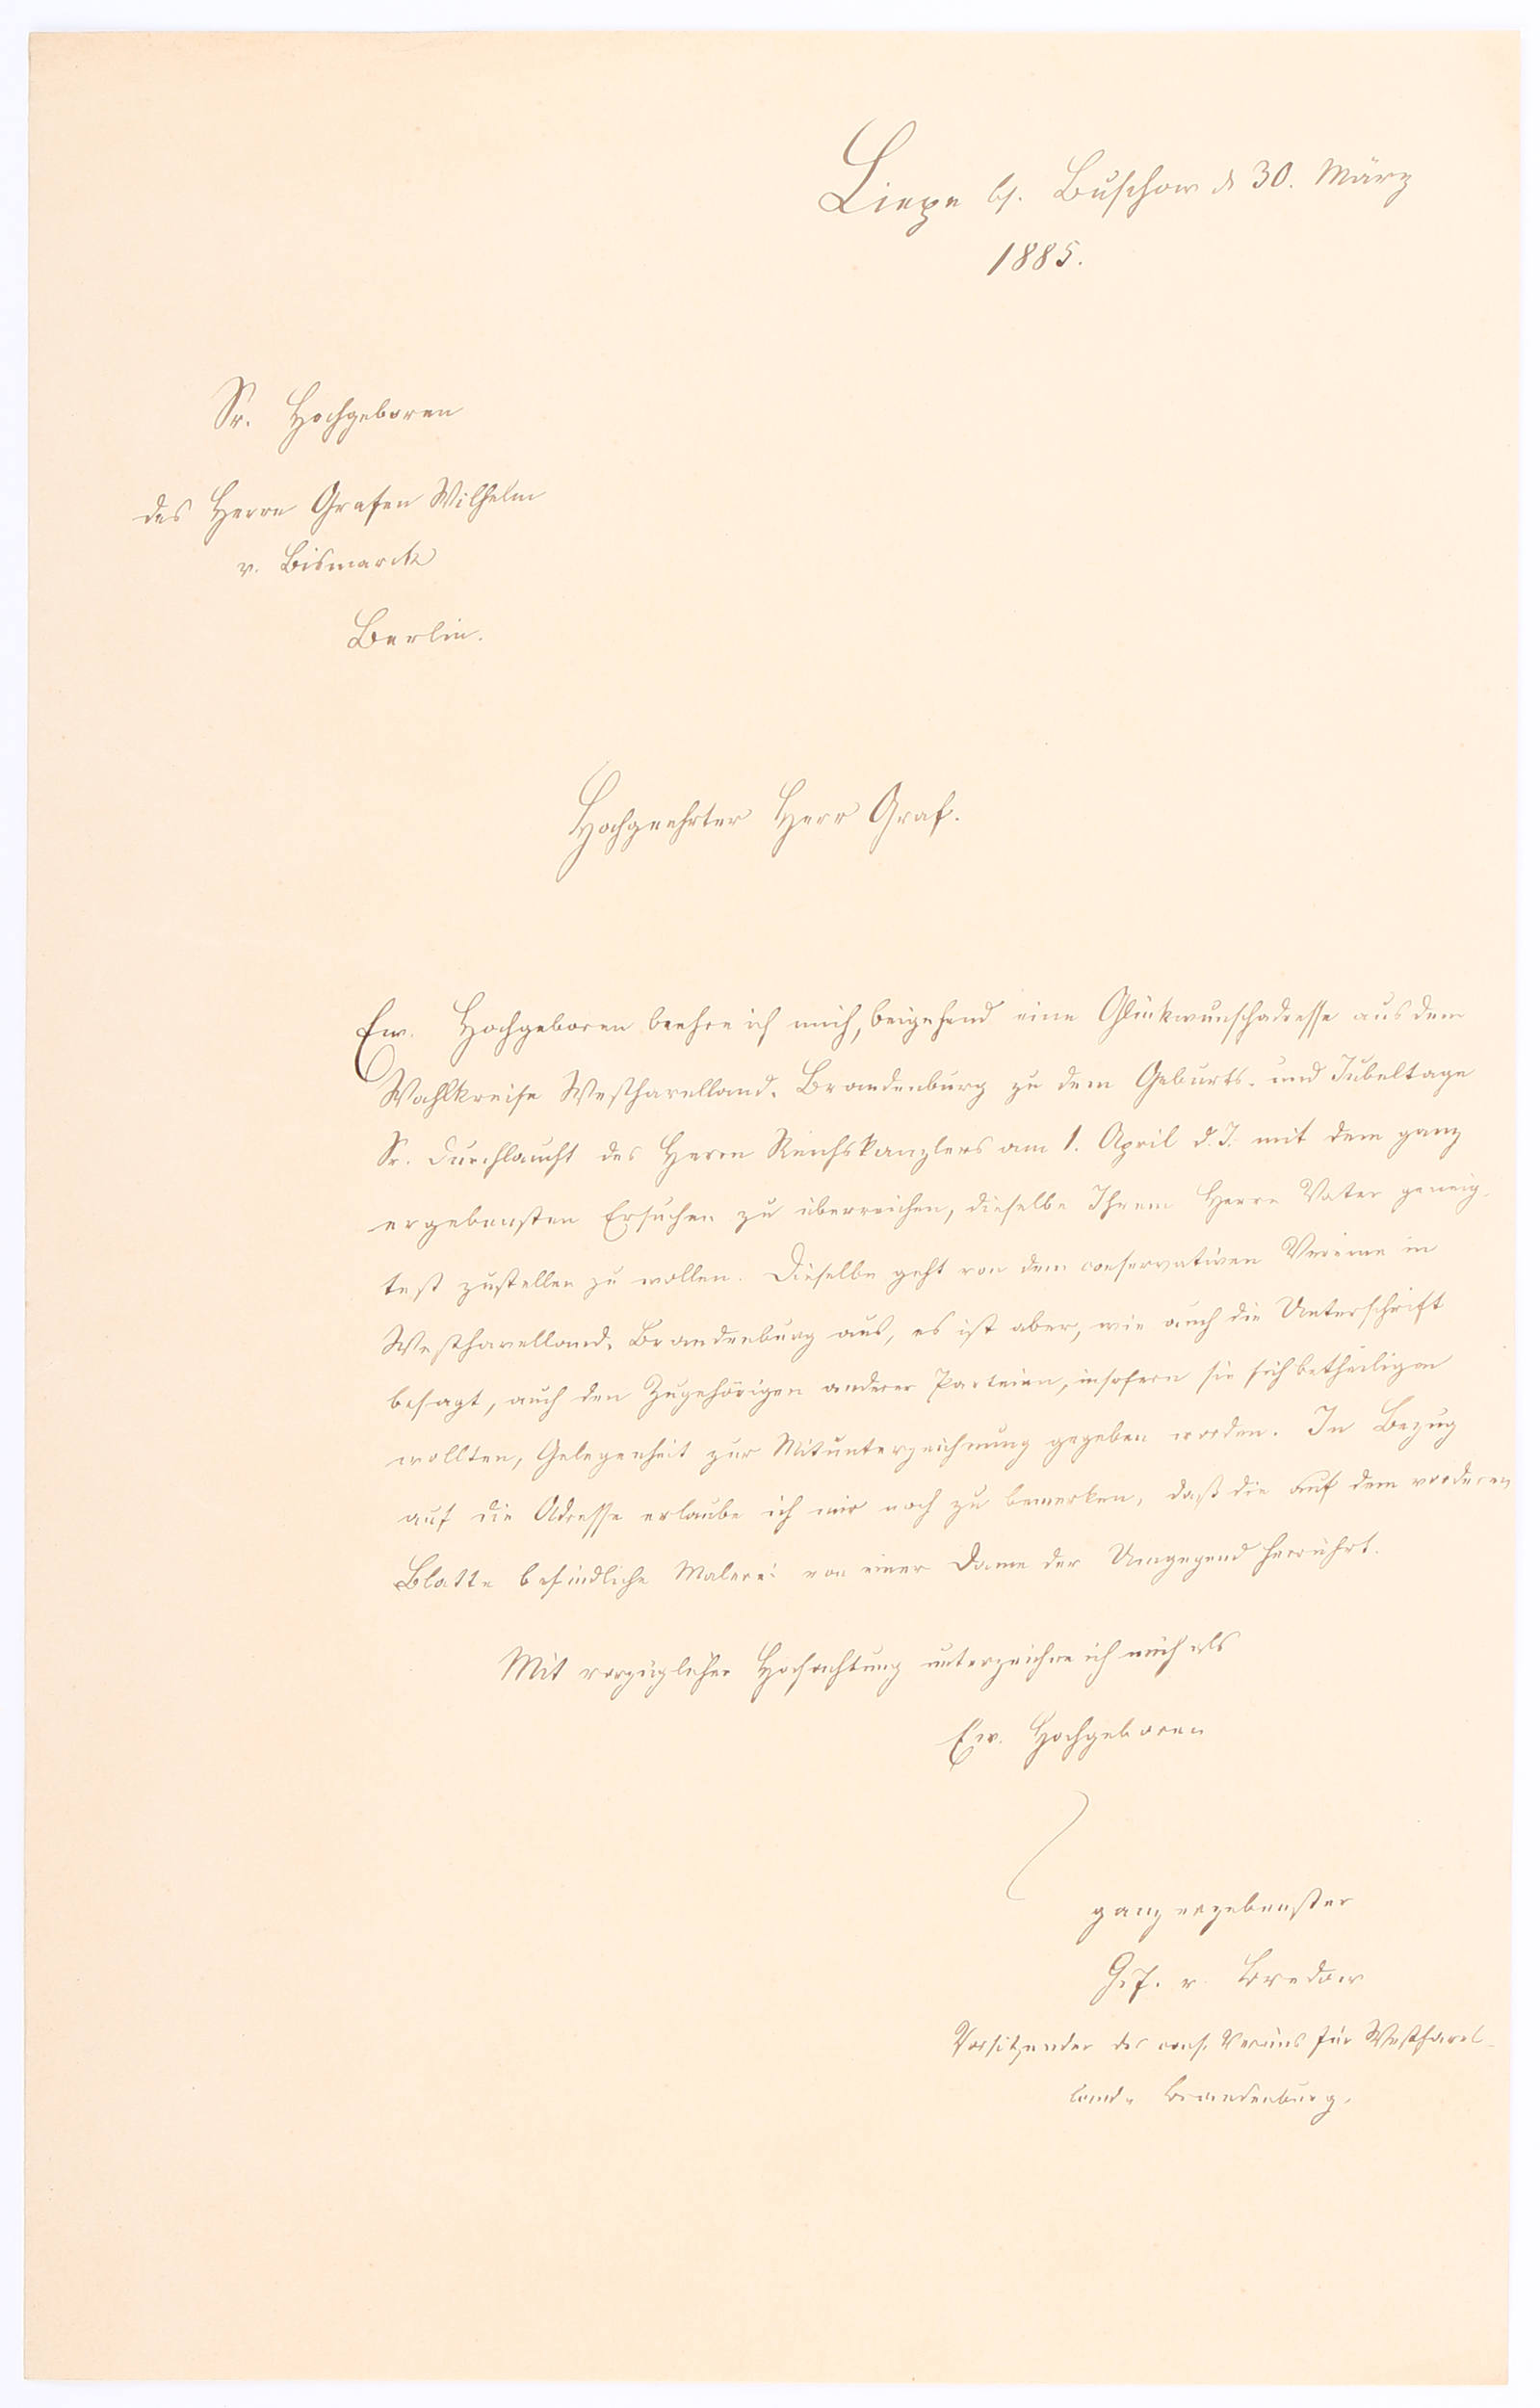 Liepe b/. Buschow d 30. März
1885.
Sr. Hochgeboren
des Herrn Grafen Wilhelm
v. Bismarck
Berlin.
Hochgeehrter Herr Graf.
Ew. Hochgeboren beehre ich mich, beigehend eine Glückwunschadresse aus dem
Wahlkreise Westhavelland-Brandenburg zu dem Geburts- und Jubeltage
Sr. Durchlaucht des Herrn Reichskanzlers am 1. April d. J. mit dem ganz
ergebensten Ersuchen zu überreichen, dieselbe Ihrem Herrn Vater geneig-
test zustellen zu wollen. Dieselbe geht von dem conservativen Vereine in
Westhavelland-Brandenburg aus, es ist aber, wie auch die Unterschrift
besagt, auch den Zugehörigen anderer Parteien, insofern sie sich betheiligen
wollten, Gelegenheit zur Mitunterzeichnung gegeben worden. In Bezug
auf die Adresse erlaube ich mir noch zu bemerken, daß die auf dem vorderen
Blatte befindliche Malerei von einer Dame der Umgegend herrührt.
Mit vorzüglicher Hochachtung unterzeichne ich mich als
Ew. Hochgeboren
ganz ergebenster
v. Bredow
Vorsitzender des cons. Vereins für Westhavel-
land-Brandenburg.